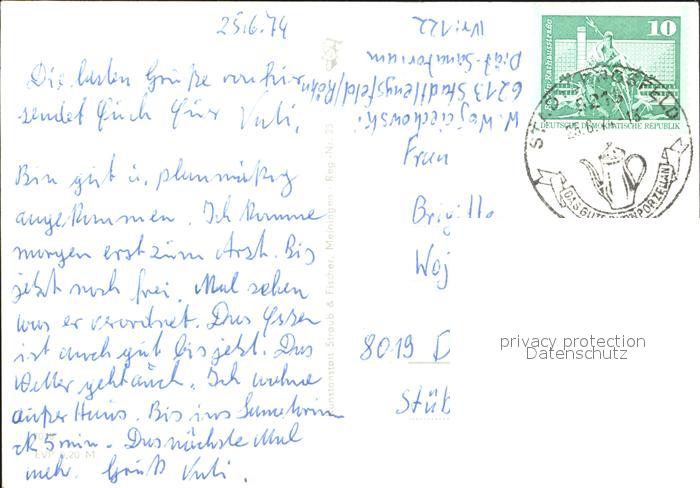 25.6.74
Die besten Grüße von hier
sendet Euch Eur Vati.
Bin gut u. planmäßig
angekommen. Ich komme
morgen erst zum Arzt. Bis
jetzt noch frei. Mal sehen
was er verordnet. Das Essen
ist auch gut bis jetzt. Das
Wetter geht auch. Ich wohne
außer Haus. Bis ins Sanatorium
ck 5 min. Das nächste Mal
mehr. Gruß Vati.
EVP 0,20 M
Kunstanstalt Straub & Fischer, Meiningen Reg.-Nr.
W. Wojciechowski
6213 Stadtlengsfeld/Röhn
Diät-Sanatorium
Nr: 122
10
Rathausstraße
DEUTSCHE DEMOKRATISCHE REPUBLIK
STADTLENGSFELD
6213
DAS GUTE PORZELLAN
Frau
Brigitte
Woj
8019 D
Stüb
privacy protection
Datenschutz